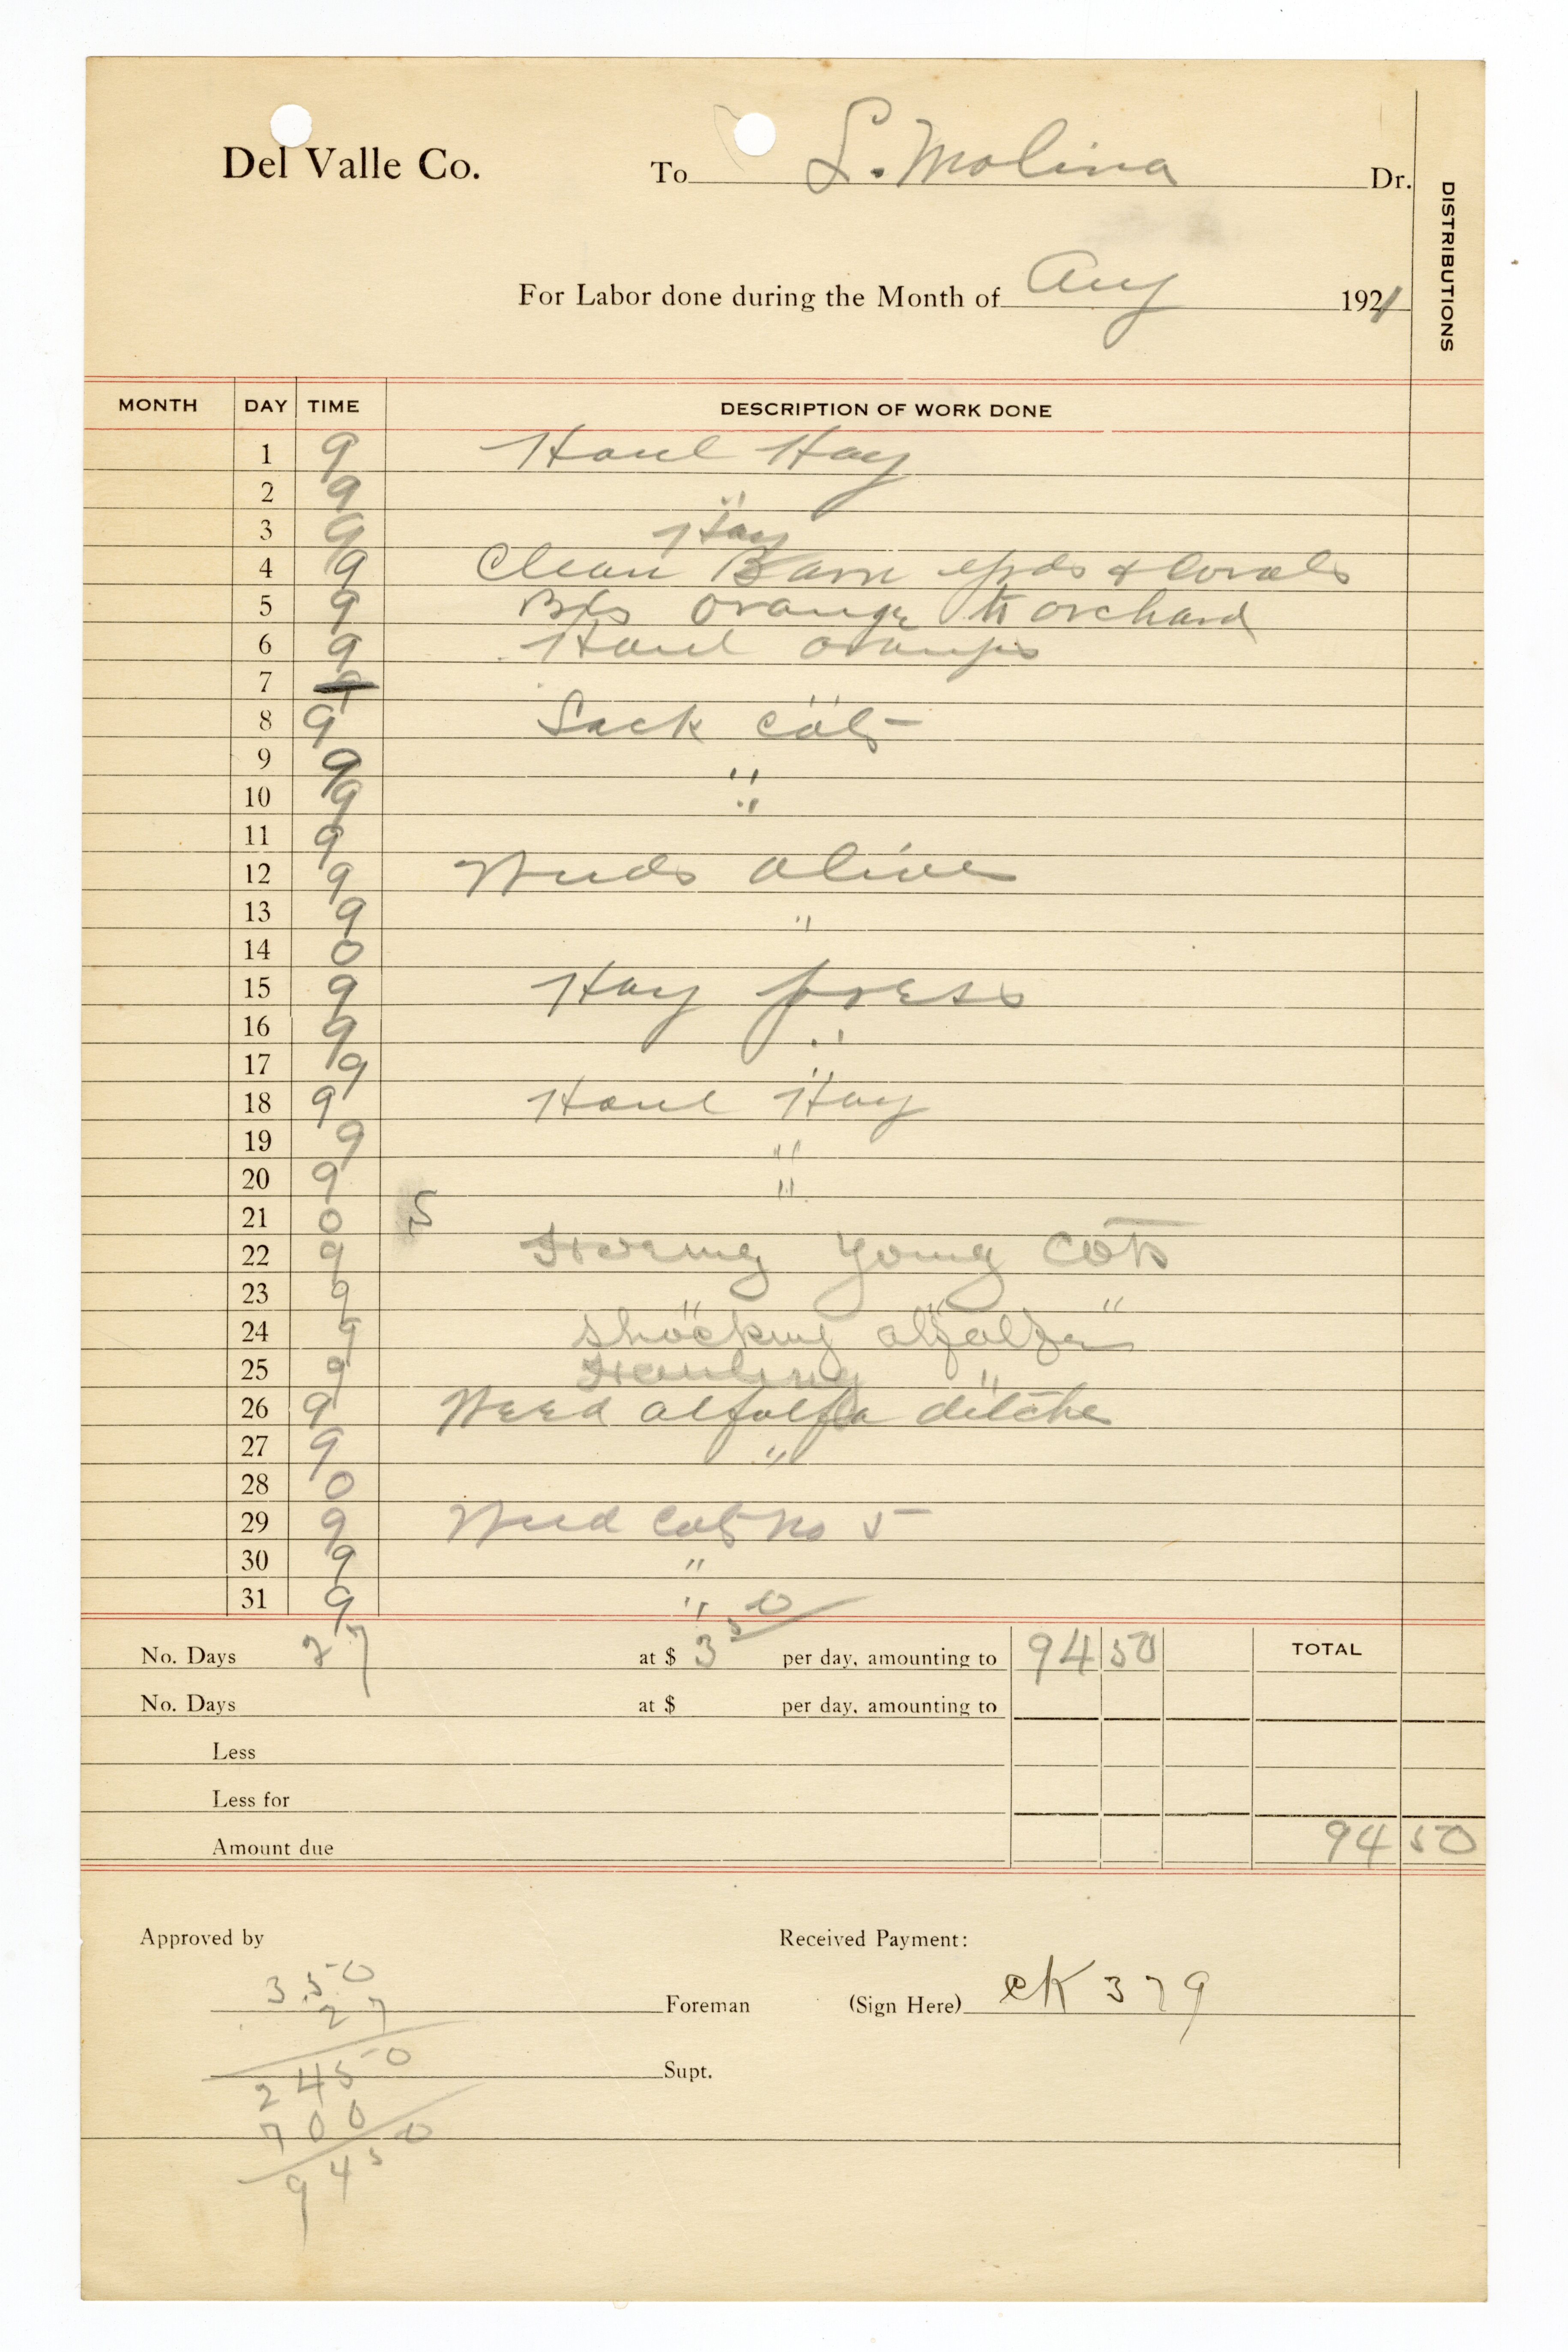 Del Valle Co. To L. Molina Dr.
DISTRIBUTIONS
For Labor done during the Month of Aug 1921
MONTH DAY TIME DESCRIPTION OF WORK DONE
1 9 Haul Hay
2 9 "
3 9 Hay
4 9 Clean Barn yrds & Corals
5 9 Bxs orange to orchard
6 9 Haul oranges
7
8 9 Sack cots
9 9 "
10 9 "
11 9
12 9 Weeds olives
13 9 "
14 0
15 9 Hay press
16 9 "
17 9 "
18 9 Haul Hay
19 9 "
20 9 "
21 0 S
22 9 Hoeing young cots
23 9 " " "
24 9 Shocking alfalfa
25 9 Hauling "
26 9 Weed alfalfa ditche
27 9 "
28 0
29 9 Weed Cots no 5
30 9 "
31 9 "
No. Days 27 at $ 3 50 per day, amounting to 94 50 TOTAL
No. Days at $ per day, amounting to
Less
Less for
Amount due 94 50
Approved by Received Payment:
3.50
Foreman (Sign Here) CK 379
27
2450
Supt.
700
9450